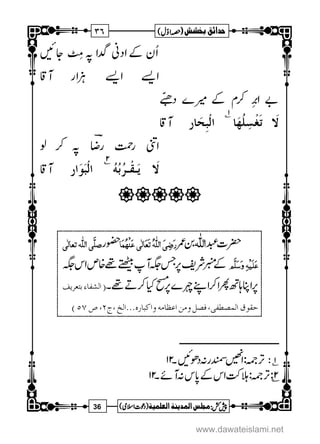 حدائق بخشش (حصہ اوّل)
۳۶
اُن کے ادنیٰ گدا پہ مِٹ جائیں
ایسے ایسے ہزار آقا
بے اَبرِ کرم کے میرے دھبّے
لَا تَغْسِلُهَا الْبِحَارُ ۱ آقا
اتنی رحمت رضا پہ کر لو
لَا يَقْرُبُهُ الْبَوَارُ ۲ آقا
حضرت عبد اللّٰہ بن عمر رَضِیَ اللّٰہُ تَعَالٰی عَنْہُمَا حضور صلَّی اللّٰہ تعالٰی
عَلَیْہِ وَسَلَّم کے منبر شریف پر جس جگہ آپ بیٹھتے تھے خاص اس جگہ
پر اپنا ہاتھ پھرا کر اپنے چہرے پر مسح کیا کرتے تھے۔ (الشفاء بتعریف
حقوق المصطفی، فصل ومن اعظامه واکبارہ...الخ، ج۲، ص ۵۷)
۱: ترجمہ: انھیں سمندر نہ دھوئیں۔۱۲
۲: ترجمہ: ہلاکت اس کے پاس نہ آئے۔۱۲
پیش کش: مجلس المدینة العلمیة (دعوتِ اسلامی)
36
www.dawateislami.net